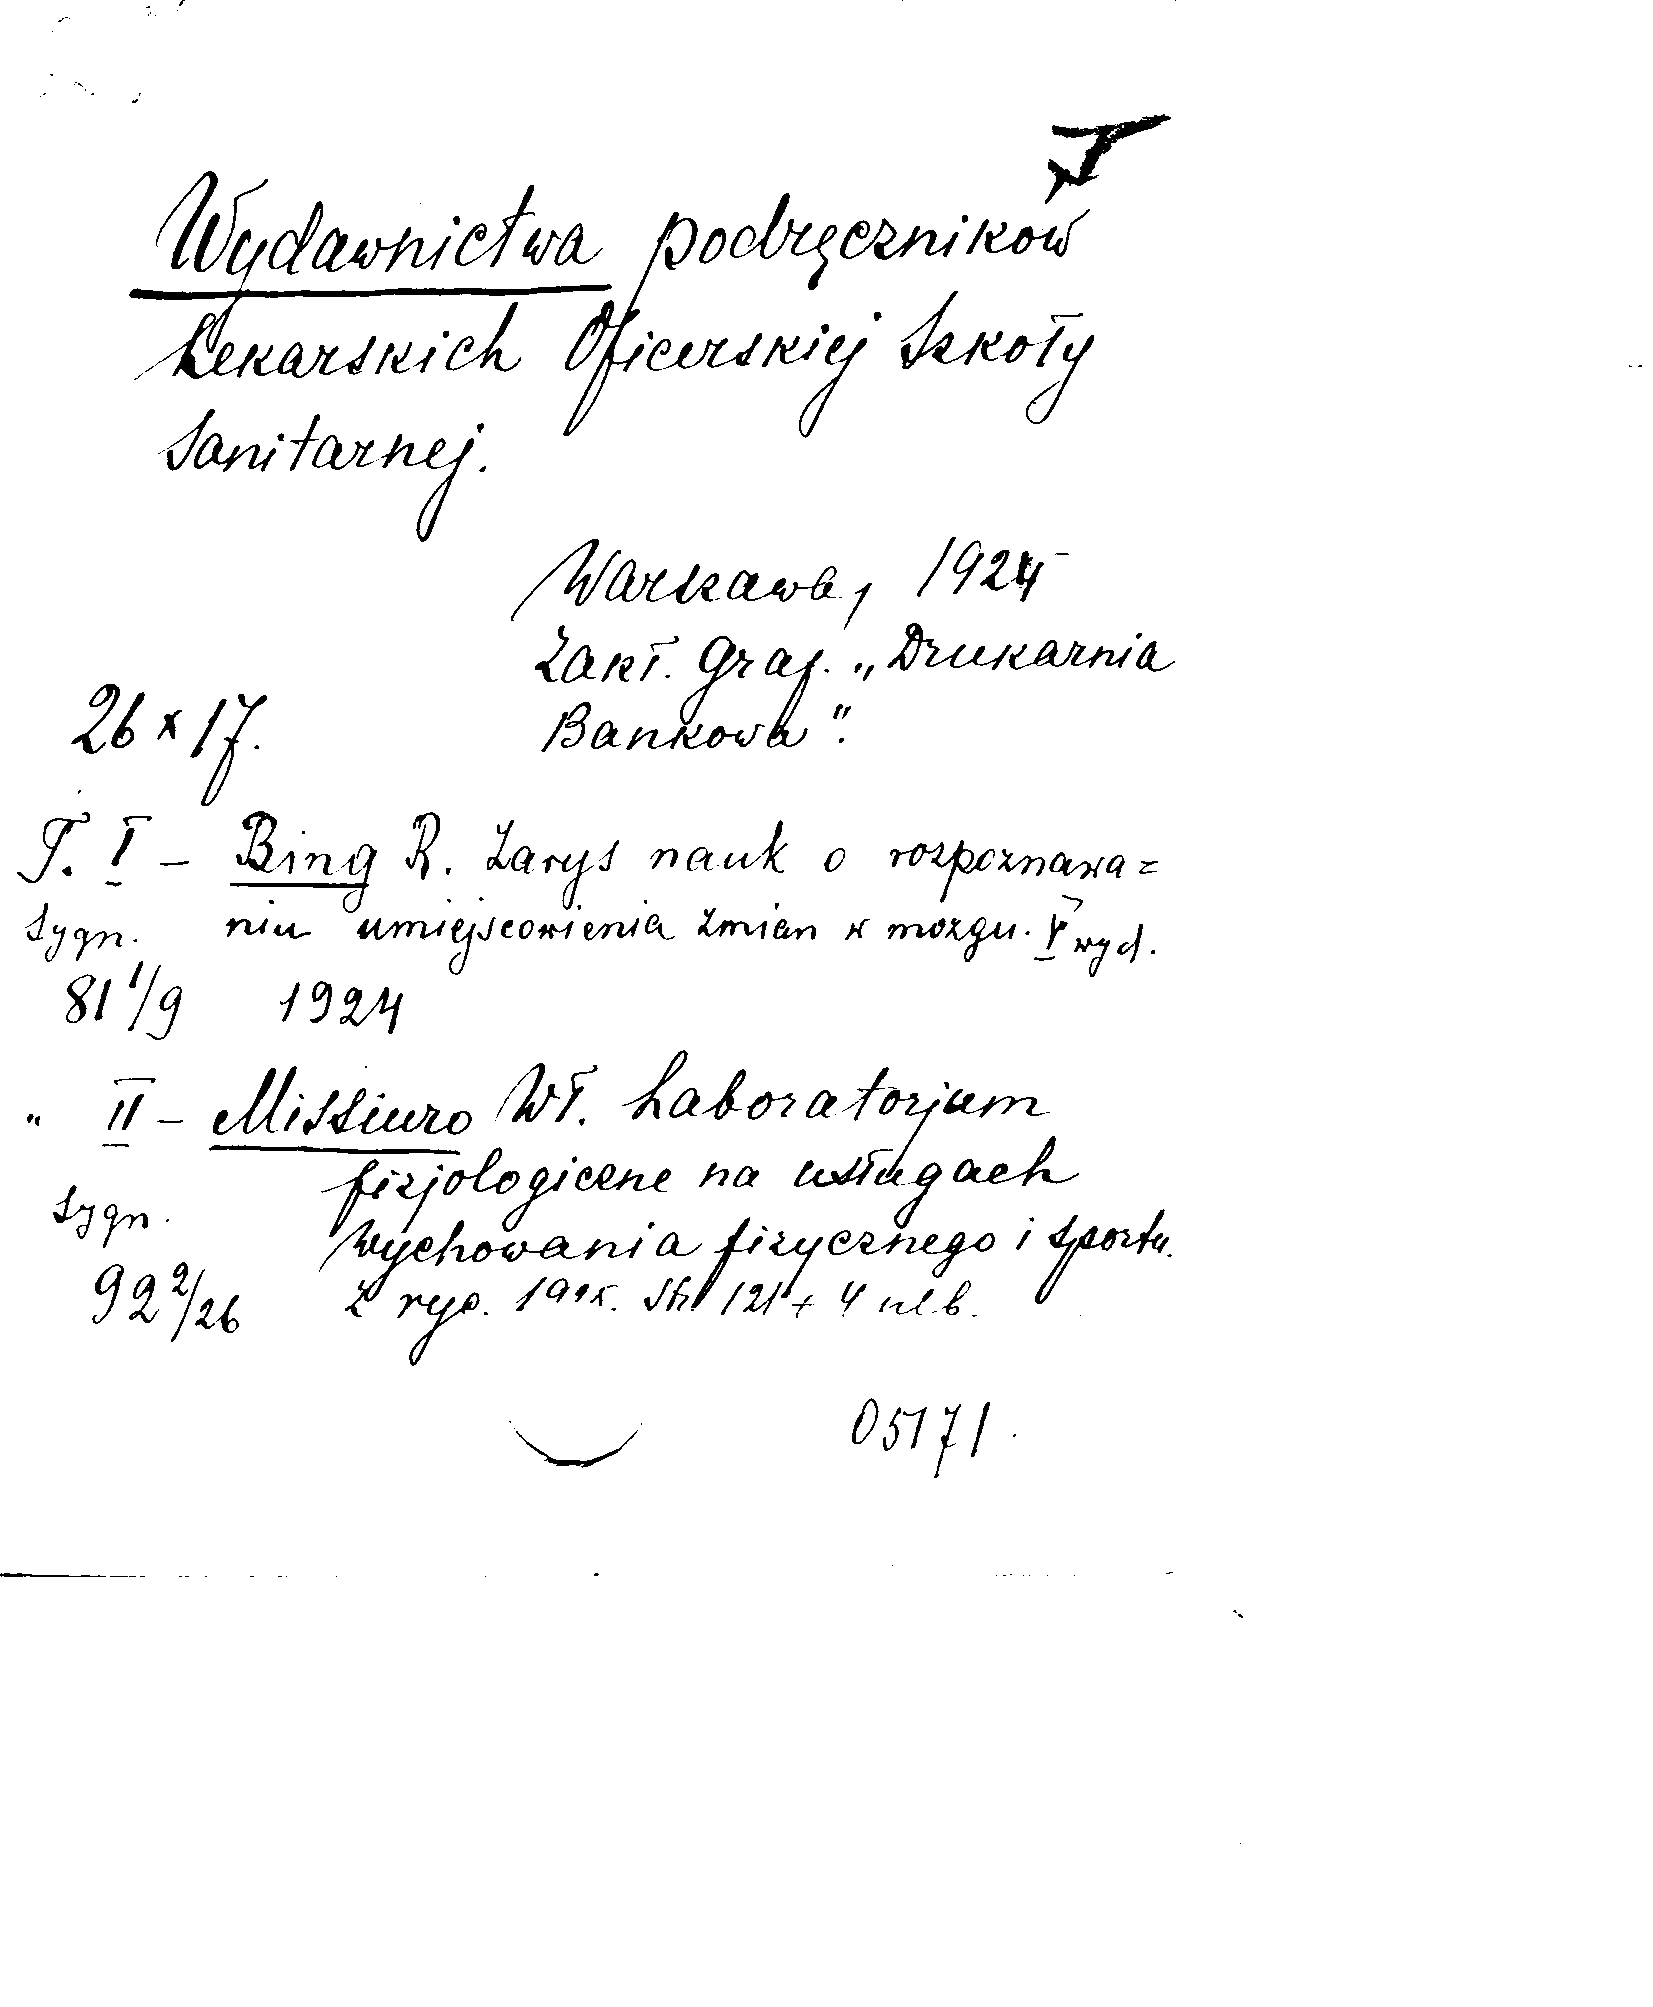 Wydawnictwa podręczników
Lekarskich Oficerskiej Szkoły
Sanitarnej.
Warszawa, 1924
Zakł. Graf. „Drukarnia
Bankowa".
26 x 17.
T. I – Bing R. Zarys nauk o rozpoznawa=
niu umiejscowienia zmian w mózgu. V wyd.
sygn.
81 1/9 1924
" II – Missiuro Wł. Laboratorjum
fizjologiczne na usługach
sygn.
wychowania fizycznego i sportu.
92 2/26 Z ryc. Str. 121 + 4 nlb.
05171